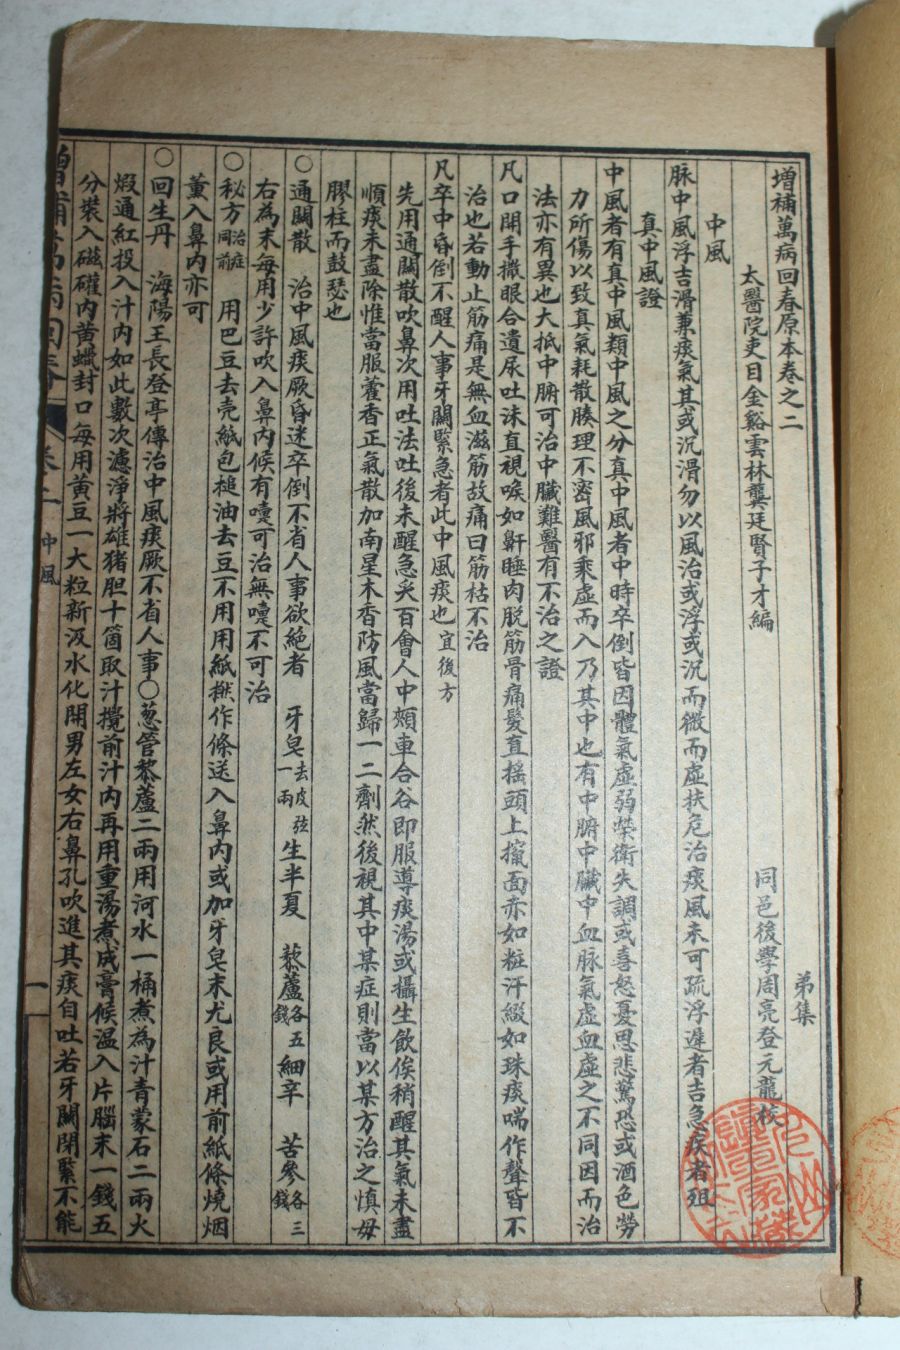 增補萬病回春原本卷之二
弟集
太醫院吏目金谿雲林龔廷賢子才編
同邑後學周亮登元龍校
中風
脉中風浮吉滑兼痰氣其或沉滑勿以風治或浮或沉而微而虛扶危治痰風未可疏浮遲者吉急疾者殂
真中風證
中風者有真中風類中風之分真中風者中時卒倒皆因體氣虛弱榮衛失調或喜怒憂思悲驚恐或酒色勞
力所傷以致真氣耗散腠理不密風邪乘虛而入乃其中也有中腑中臟中血脉氣虛血虛之不同因而治
法亦有異也大抵中腑可治中臟難醫有不治之證
凡口開手撒眼合遺尿吐沫直視喉如鼾睡肉脱筋骨痛髮直搖頭上攛面赤如粧汗綴如珠痰喘作聲皆不
治也若動止筋痛是無血滋筋故痛曰筋枯不治
凡卒中昏倒不醒人事牙關緊急者此中風痰也宜後方
先用通關散吹鼻次用吐法吐後未醒急灸百會人中頰車合谷即服導痰湯或攝生飲俟稍醒其氣未盡
順痰未盡除惟當服藿香正氣散加南星木香防風當歸一二劑然後視其中某症則當以某方治之慎毋
膠柱而鼓瑟也
○通關散 治中風痰厥昏迷卒倒不省人事欲絶者 牙皂去皮弦一兩生半夏 藜蘆各五錢細辛 苦參各三錢
右為末每用少許吹入鼻内候有嚏可治無嚏不可治
○秘方治症同前 用巴豆去売紙包搥油去豆不用用紙撚作條送入鼻内或加牙皂末尤良或用前紙條燒烟
薰入鼻内亦可
○回生丹 海陽王長登亭傳治中風痰厥不省人事○葱管藜蘆二兩用河水一桶煮為汁青蒙石二兩火
煅通紅投入汁内如此數次濾淨將雄猪胆十箇取汁攪前汁内再用重湯煮成膏候温入片腦末一錢五
分裝入磁礶内黄蠟封口每用黄豆一大粒新汲水化開男左女右鼻孔吹進其痰自吐若牙關閉緊不能
增補萬病回春 卷二 中風 一